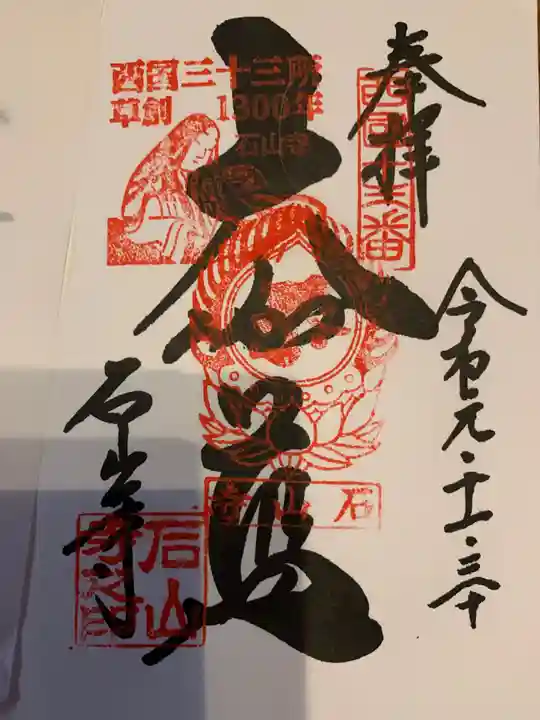 奉拝
西国十三番
令和元・十一・三十
大伽藍
西国三十三所
草創 1300年
石山寺
石山寺
石山寺
石山寺印